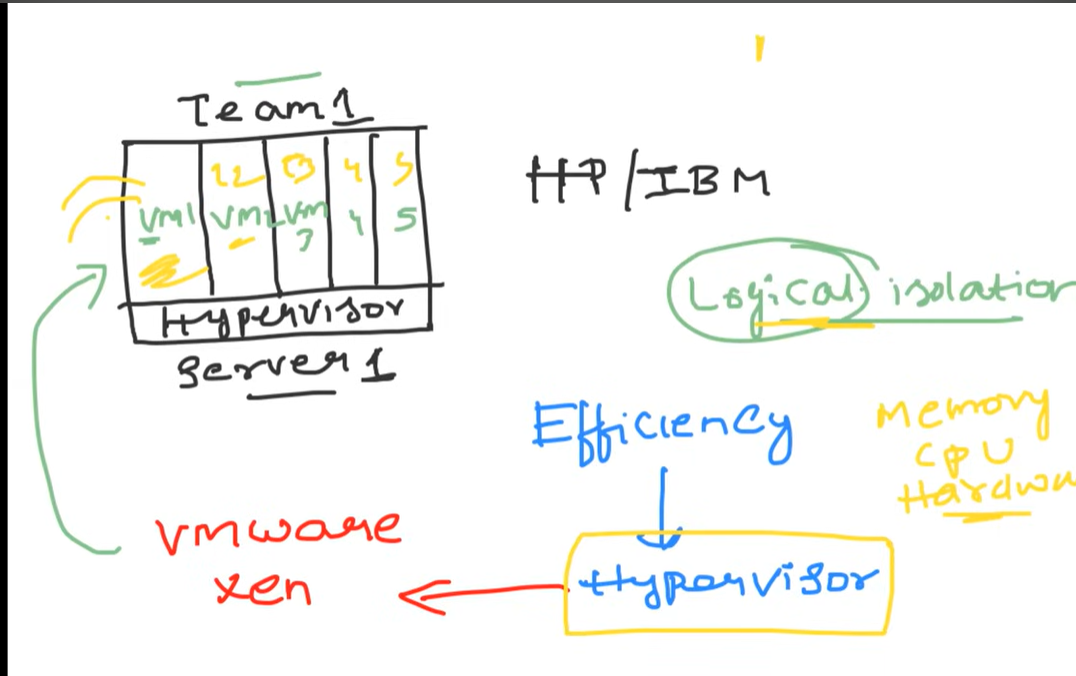 Team 1
12 13 4 5
VM1 VM2 VM 3 4 5
Hypervisor
Server 1
HP/IBM
Logical isolation
Efficiency
Memory
CPU
Hypervisor
Vmware
xen